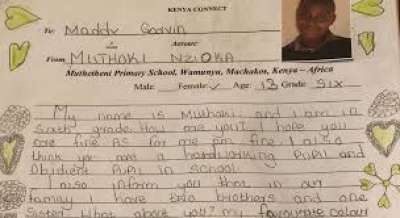 KENYA CONNECT
To: Maddy Godvin
From MUTHOKI NZIOKA
Muthetheni Primary School, Wamunyu, Machakos, Kenya – Africa
Male: Female: ✓ Age: 13 Grade: SIX
My name is Muthoki and I am in
sixth grade. How are you? I hope you
are fine as for me am fine. I also
think you are a hardworking Pupil and
Obidient Pupil in school.
I also inform you that in our
family I have two brothers and one
sister. What about you? my favourate colour